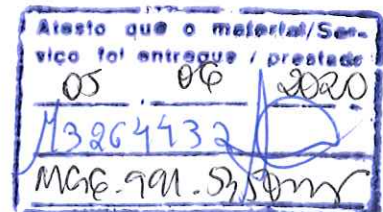 Atesto que o material/Ser-
viço foi entregue / prestado
05 06 2020
M3264432
MG6.991.54